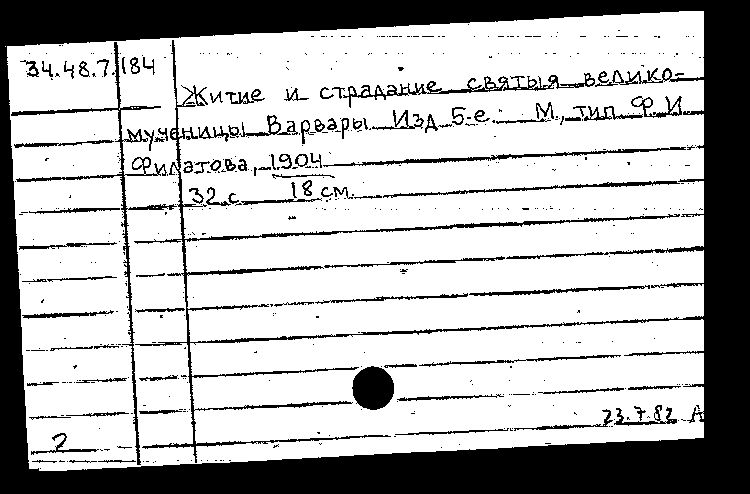 34.48.7.184
Житие и страдание святыя велико-
мученицы Варвары Изд 5-е М., тип Ф. И.
Филатова, 1904
32 с 18 см.
23.7.82 А
2